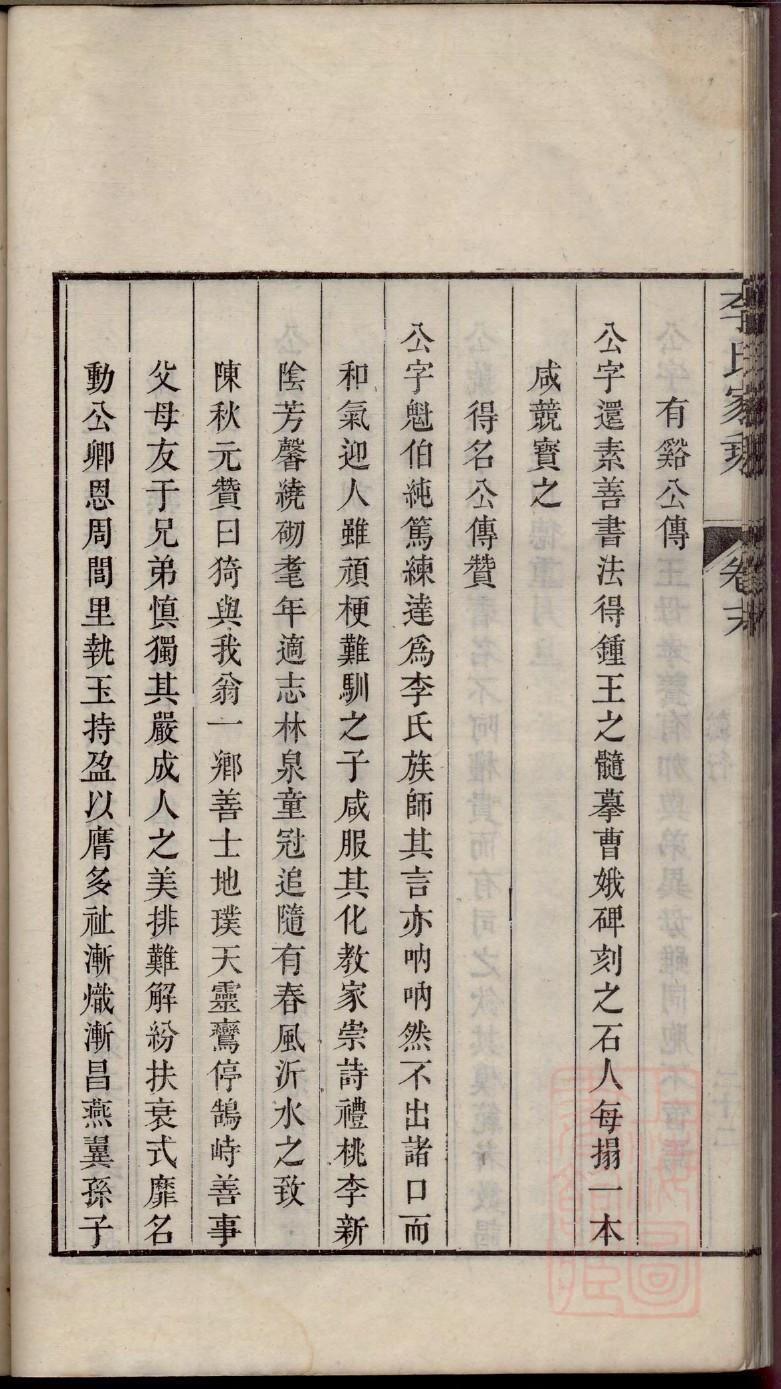 李氏家乘 卷末
有谿公傳
公字還素善書法得鍾王之髓摹曹娥碑刻之石人每搨一本
咸競寶之
得名公傳贊
公字魁伯純篤練達爲李氏族師其言亦吶吶然不出諸口而
和氣迎人雖頑梗難馴之子咸服其化教家崇詩禮桃李新
陰芳馨繞砌耄年適志林泉童冠追隨有春風沂水之致
陳秋元贊曰猗與我翁一鄉善士地璞天靈鸞停鵠峙善事
父母友于兄弟慎獨其嚴成人之美排難解紛扶衰式靡名
動公卿恩周閭里執玉持盈以膺多祉漸熾漸昌燕翼孫子